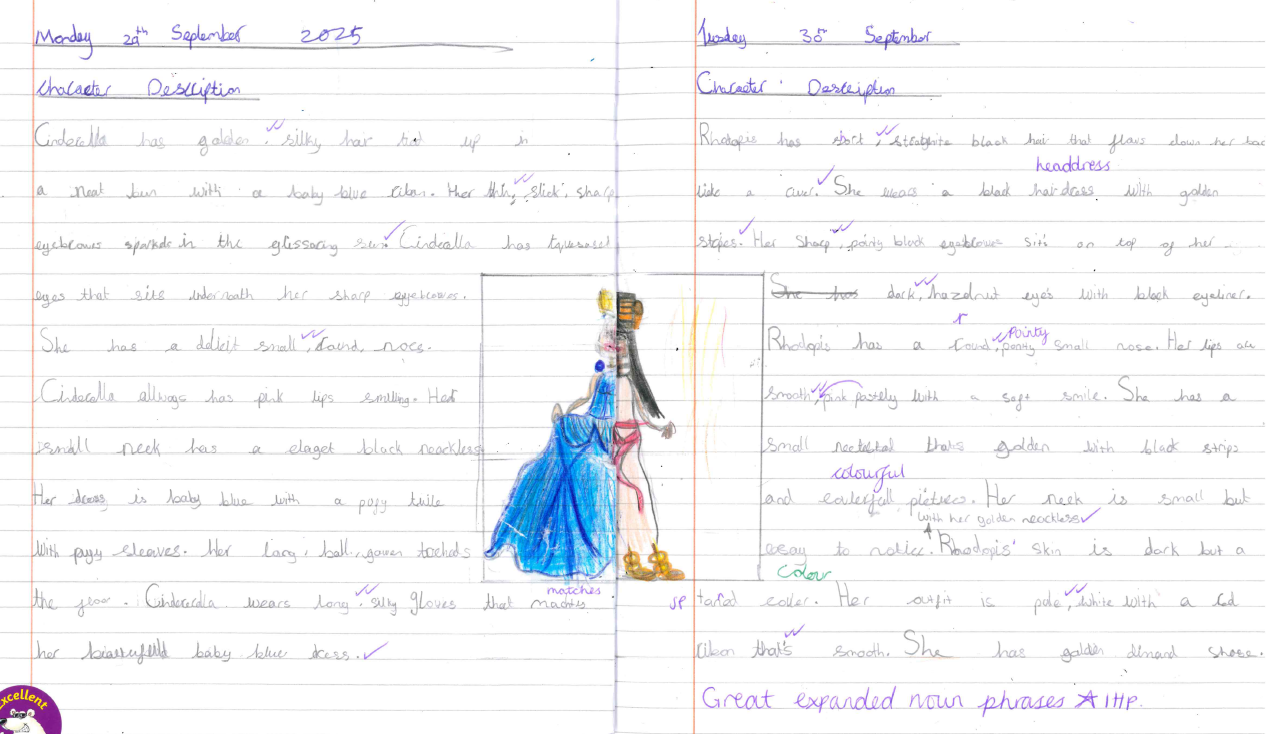 Monday 29th September 2025
Character Description
Cinderella has golden, silky hair tied up in
a neat bun with a baby blue riban. Her thin, slick, sharp
eyebrows sparkde in the glissoring sun. Cinderalla has
eyes that sits underneath her sharp eyebrows.
She has a small, round, noes.
Cinderella always has pink lips smiling. Her
small neck has a elaget black neckless
Her dress is baby blue with a puffy
with puffy sleaves. Her long, ball, gowen
the floor. Cinderella wears long, silky gloves that
matches
her baby blue dress.
Excellent
Tuesday 30th September
Character Description
Rhodopis has short, black hair that flows down her bac
like a river. She wears a black hairdress with golden
headdress
stripes. Her sharp, pointy black eyeblowes sits on top of her
She has dark, hazelnut eye's with black eyeliner.
r
Rhodopis has a round, pointy small nose. Her lips are
Pointy
smooth, pink pastely with a soft smile. She has a
small that's golden with black strips
colourful
and pictures. Her neek is small but
with her golden neackless
eesay to notice. Rhodopis' skin is dark but a
colour
coler. Her outfit is pale, white with a red
sp
riben that's smooth. She has golden dimand shose.
Great expanded noun phrases 1HP.